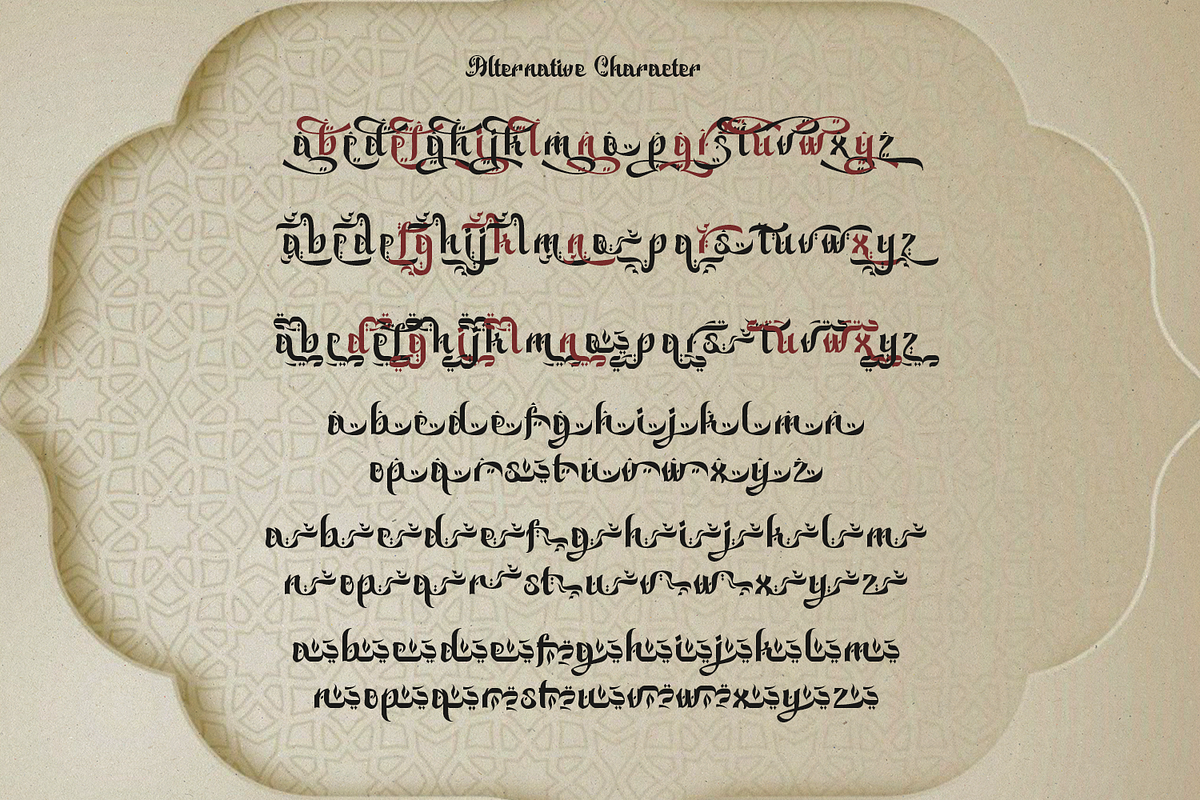 Alternative Character
abcdefghijklmnopqrstuvwxyz
abcdefghijklmnopqrstuvwxyz
abcdefghijklmnopqrstuvwxyz
abcdefghijklmn
opqrstuvwxyz
abcdefghijklm
nopqrstuvwxyz
abcdefghijklm
nopqrstuvwxyz